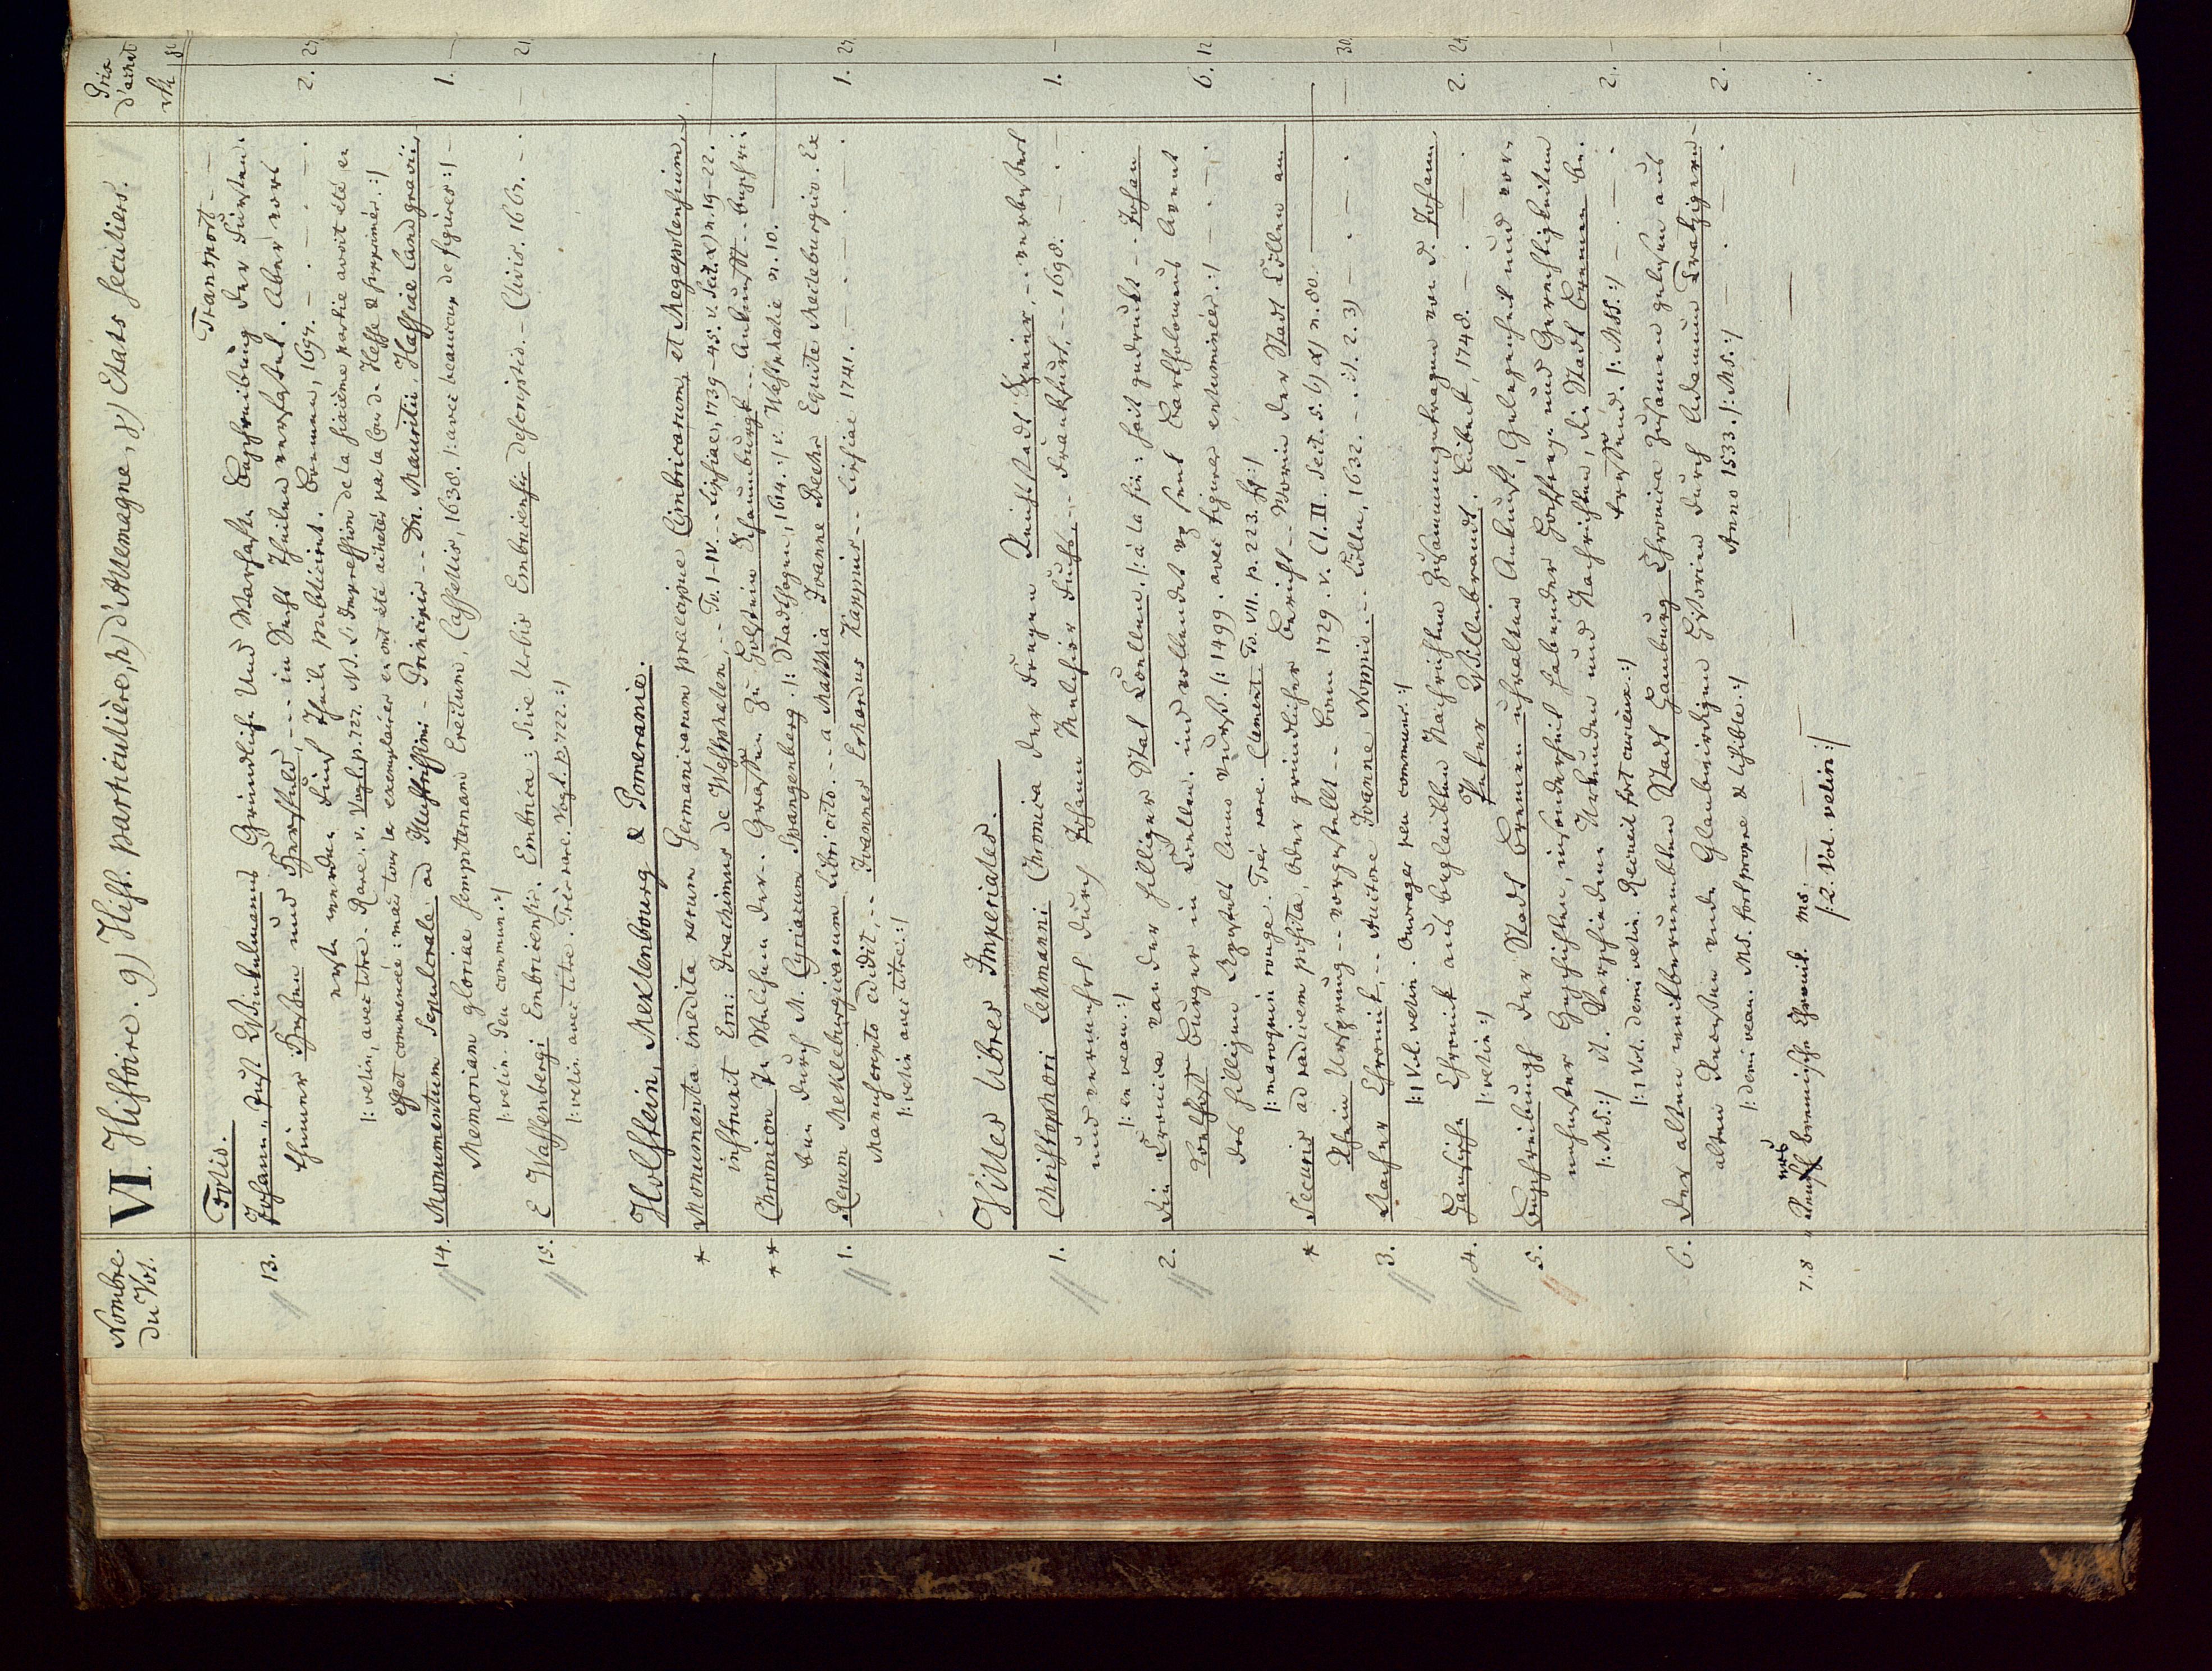 Nombre du Vol. VI. Histoire. g) Hist. particulière, h) d'Allemagne, δ) Etats seculiers. Prix d'achat
rth gr
Folio. Transport - -
13. Johann Just Winkelmanns Gründliche Und Warhafte Beschreibung der Fürsten-
thümer Hessen und Hersfeld, -- in Sechs Theilen verfasset. Aber vors
erst werden Fünf Theile publiciret. Bremen, 1697. - - - 2. 27.
|: velin, avec titre. Rare. v. Vogt. p. 727. NB. L'impression de la sixième partie avoit été en
effet commencée: mais tous les exemplaires en ont été achetés par la Cour de Hesse & supprimés. :|
14. Monumentum Sepulcrale ad Illustrissimi - Principis -- Dn. Mauritii, Hassiae Landgravii,
Memoriam gloriae sempiternam Erectum, Cassellis, 1638. |: avec beaucoup de figures :| - 1. -
|: velin. Peu commun :|
15. E Wassenbergi Embricensis. Embrica: sive Urbis Embricensis descriptio. - Clivis. 1667. - . - 21.
|: velin avec titre. Très rare. Vogt. p. 722. :|
Holstein, Mexlenbourg & Pomeranie.
* Monumenta inedita rerum Germanicarum praecipue Cimbricarum, et Megapolensium,
instruxit Ern: Joachimus de Westphalen, -- To. I-IV. -- Lipsiae, 1739-45. v. Sect. α) n. 19-22.
** Chronicon In Welchem der Graffen zu Holstein Schaumburgk -- Ankunfft -- beschri-
ben durch M. Cyriacum Spangenberg. |: Stadthagen, 1614. :| v. Westphalie n. 10.
1. Rerum Mekleburgicarum Libri octo. -- a Matthia Joanne Beehr Equite Mecleburgico. Ex
Manuscripto edidit, -- Joannes Erhardus Kappius -- Lipsiae 1741. - . - . - 1. 27.
|: velin avec titre :|
Villes Libres Imperiales.
1. Christophori Lehmanni Chronica der Freyen Reichsstadt Speier, -- verbessert
und vermehrt durch Johann Melchior Fuchs, -- Franckfurt, -- 1698. - . - 1. -
|: en veau. :|
2. Die Cronica van der hilliger Stat Coellen. |: à la fin: hait gedruckt -- Johan
Koelhoff Burger in Coellen. ind vollendet up sent Bartholomeus Avent
des hilligen Apostels Anno vurß. |: 1499. avec figures enluminées :| - . - . 6. 12
|: maroquin rouge. Très rare. Clement. To. VII. p. 223. sq. :|
* Securis ad radicem posita, Oder gründlicher Bericht -- Worin der Stadt Cöllen am
Rhein Ursprung -- vorgestellt -- Bonn 1729. v. Cl. II. Sect. 5. b) α) n. 80.
3. Aacher Chronick, -- Auctore Joanne Noppio -- Cölln, 1632. - . it. 2. 3) - . - . - 30.
|: 1 Vol. velin. Ouvrages peu communs. :|
4. Hansische Chronick aus beglaubten Nachrichten zusammengetragen von D. Johann
Peter Willebrandt. Lübeck, 1748. - . - . 2. 24.
|: velin :|
5. Beschreibungh der Stadt Bremen uhralten Ankunft, Gelegenheit und vor-
nehmster Geschichten, insonderheit habender Hochheit und Gerechtigkeiten
|: MS. :| it. Verschiedene Urkunden und Nachrichten, die Stadt Bremen be-
treffend. |: MSS. :| - . - . 2. -
|: 1 Vol. demi velin. Recueil fort curieux. :|
6. Der alten weitberuembten Stadt Hamburg Chronica zusamen gelesen aus
alten Knochten unde Glaubwirdigen Historien durch Adamum Tratzigern -
Anno 1533. |: MS. :| - . - . 2. -
|: demi veau. MS. fort propre & lisible. :|
7. 8 bremische Chronik. ms. - - - -
|: 2. Vol. velin :|